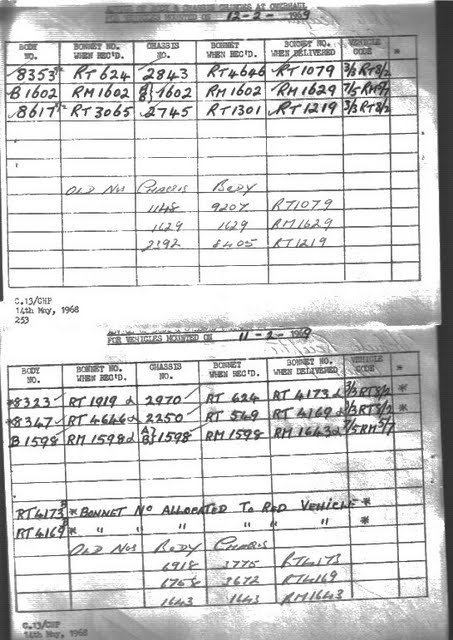 & CHASSIS NUMBERS AT OVERHAUL
FOR VEHICLES MOUNTED ON 12-2-1969
BODY NO. BONNET NO. WHEN REC'D. CHASSIS NO. BONNET WHEN REC'D. BONNET NO. WHEN DELIVERED VEHICLE CODE *
8353 RT 624 2843 RT 4646 RT 1079 3/3 RT8/2
B 1602 RM 1602 A} B} 1602 RM 1602 RM 1629 7/5 RM
8617 RT 3065 2745 RT 1301 RT 1219 3/3 RT8/2
OLD NOS CHASSIS BODY
1148 9207 RT1079
1629 1629 RM1629
2392 8405 RT1219
C.13/CHP
14th May, 1968
253
FOR VEHICLES MOUNTED ON 11-2-1969
BODY NO. BONNET NO. WHEN REC'D. CHASSIS NO. BONNET WHEN REC'D. BONNET NO. WHEN DELIVERED VEHICLE CODE *
*8323 RT 1919 2970 RT 624 RT 4173 3/3 RT8/2 *
*8347 RT 4646 2250 RT 549 RT 4169 3/3 RT8/2 *
B 1598 RM 1598 A} B} 1598 RM 1598 RM 1643 7/5 RM 5/7
RT 4173 * BONNET NO ALLOCATED TO RED VEHICLE *
RT 4169 * " " " " " " *
OLD NOS BODY CHASSIS
6918 3775 RT4173
1758 3672 RT4169
1643 1643 RM1643
C.13/CHP
14th May, 1968